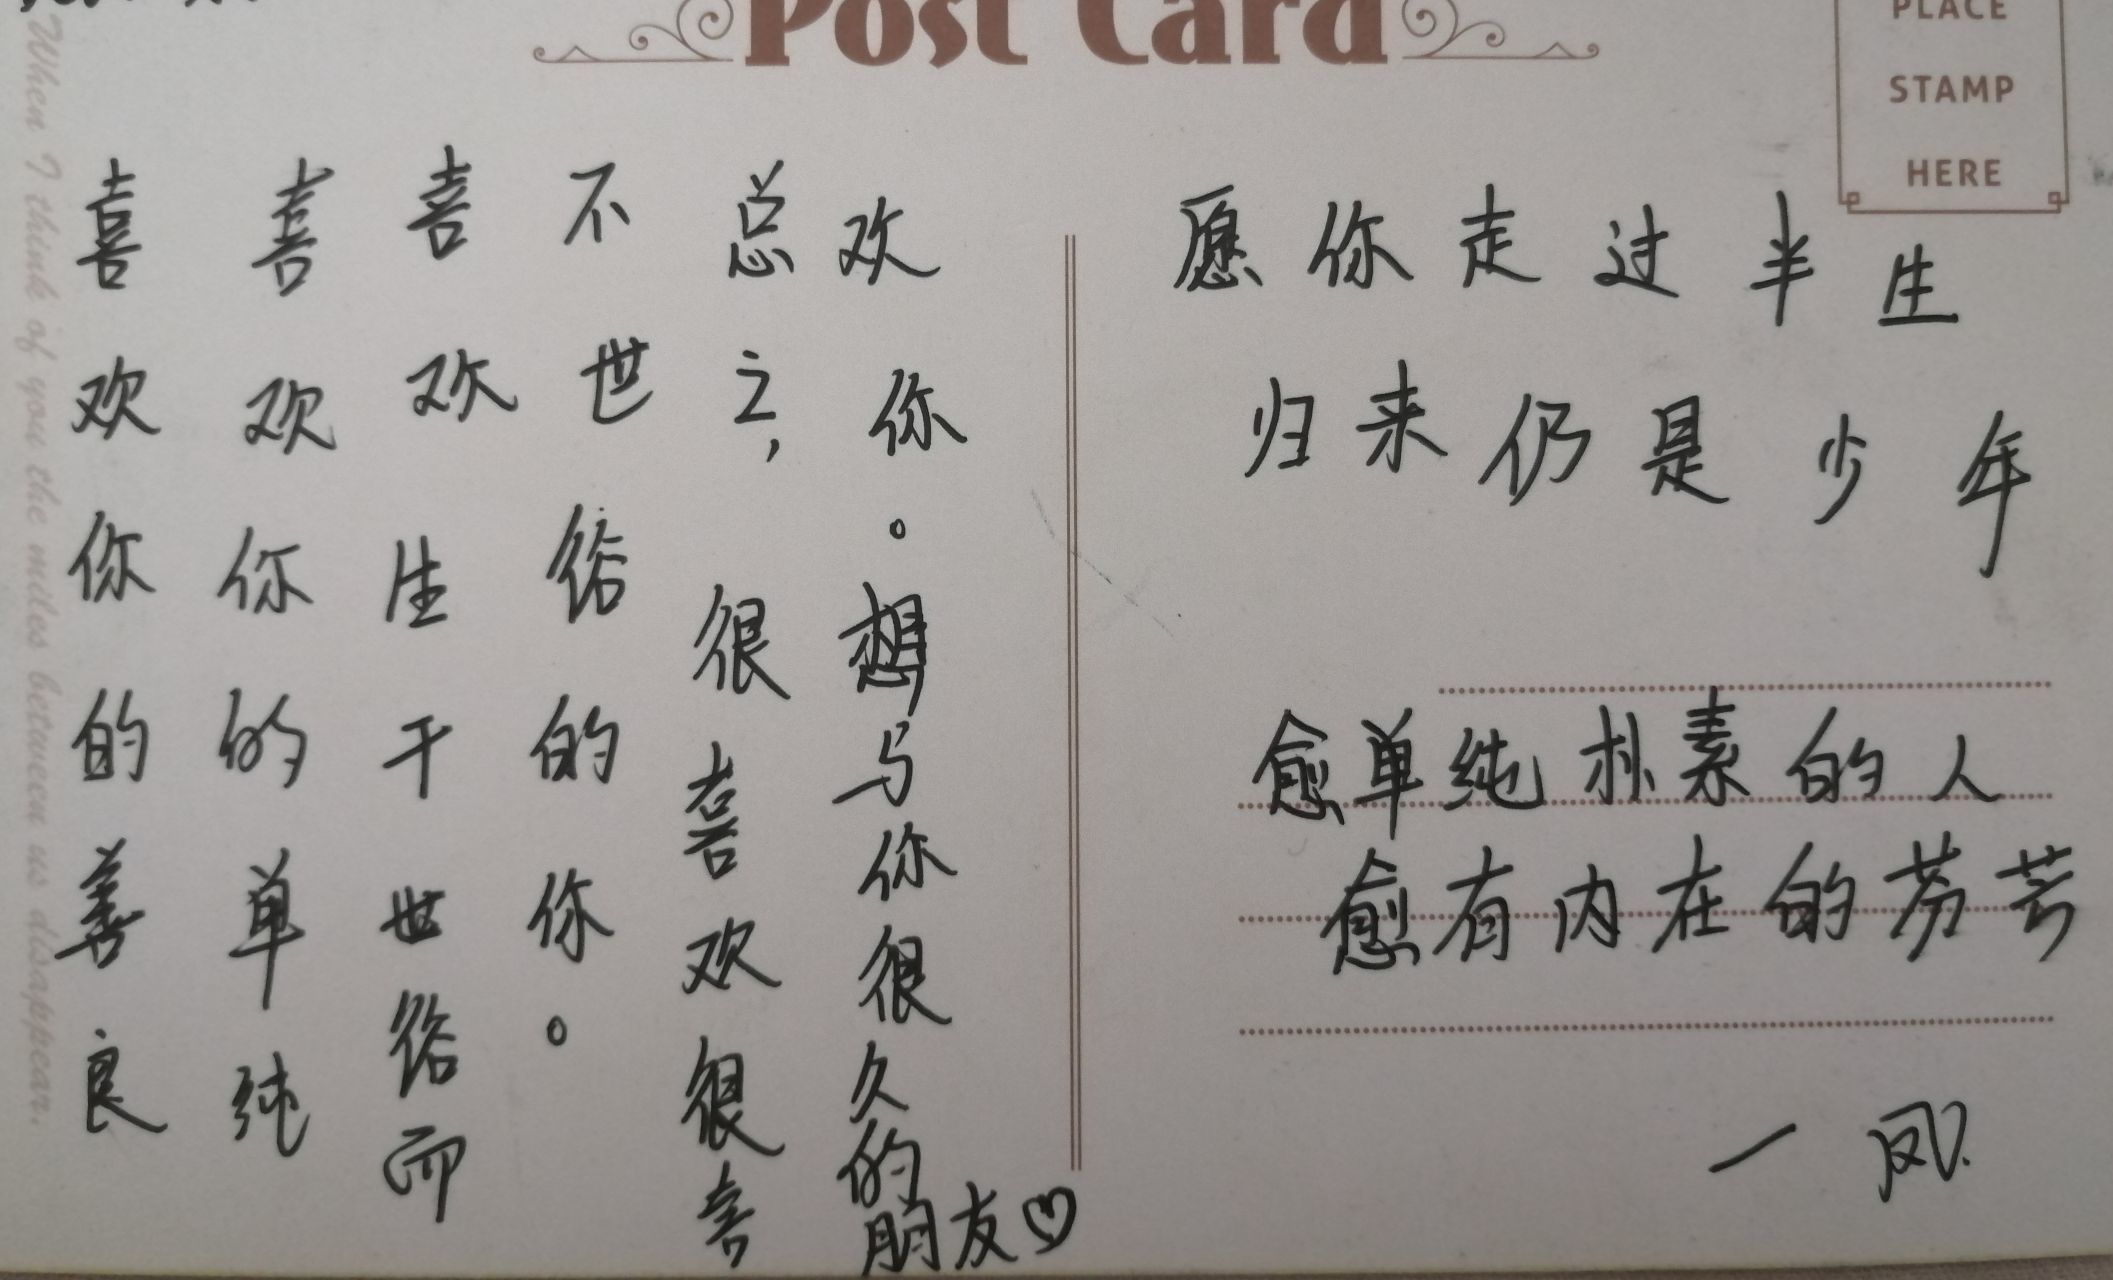 Post Card
PLACE
STAMP
HERE
When I think of you the miles between us disappear.
喜欢你的善良
喜欢你的单纯
喜欢生于世俗而
不世俗的你。
总之，很喜欢很喜
欢你。想与你很久的
朋友♡
愿你走过半生
归来仍是少年
愈单纯朴素的人
愈有内在的芬芳
一凤.